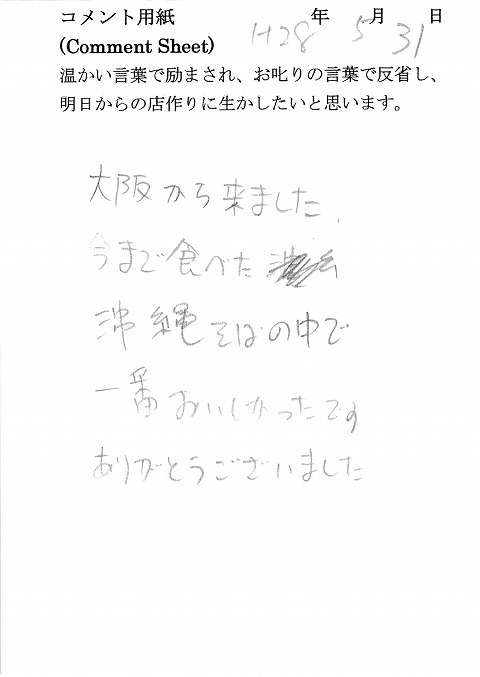 コメント用紙 年 月 日
(Comment Sheet) H28 5 31
温かい言葉で励まされ、お叱りの言葉で反省し、
明日からの店作りに生かしたいと思います。
大阪から来ました.
今まで食べた
沖縄そばの中で
一番おいしかったです
ありがとうございました